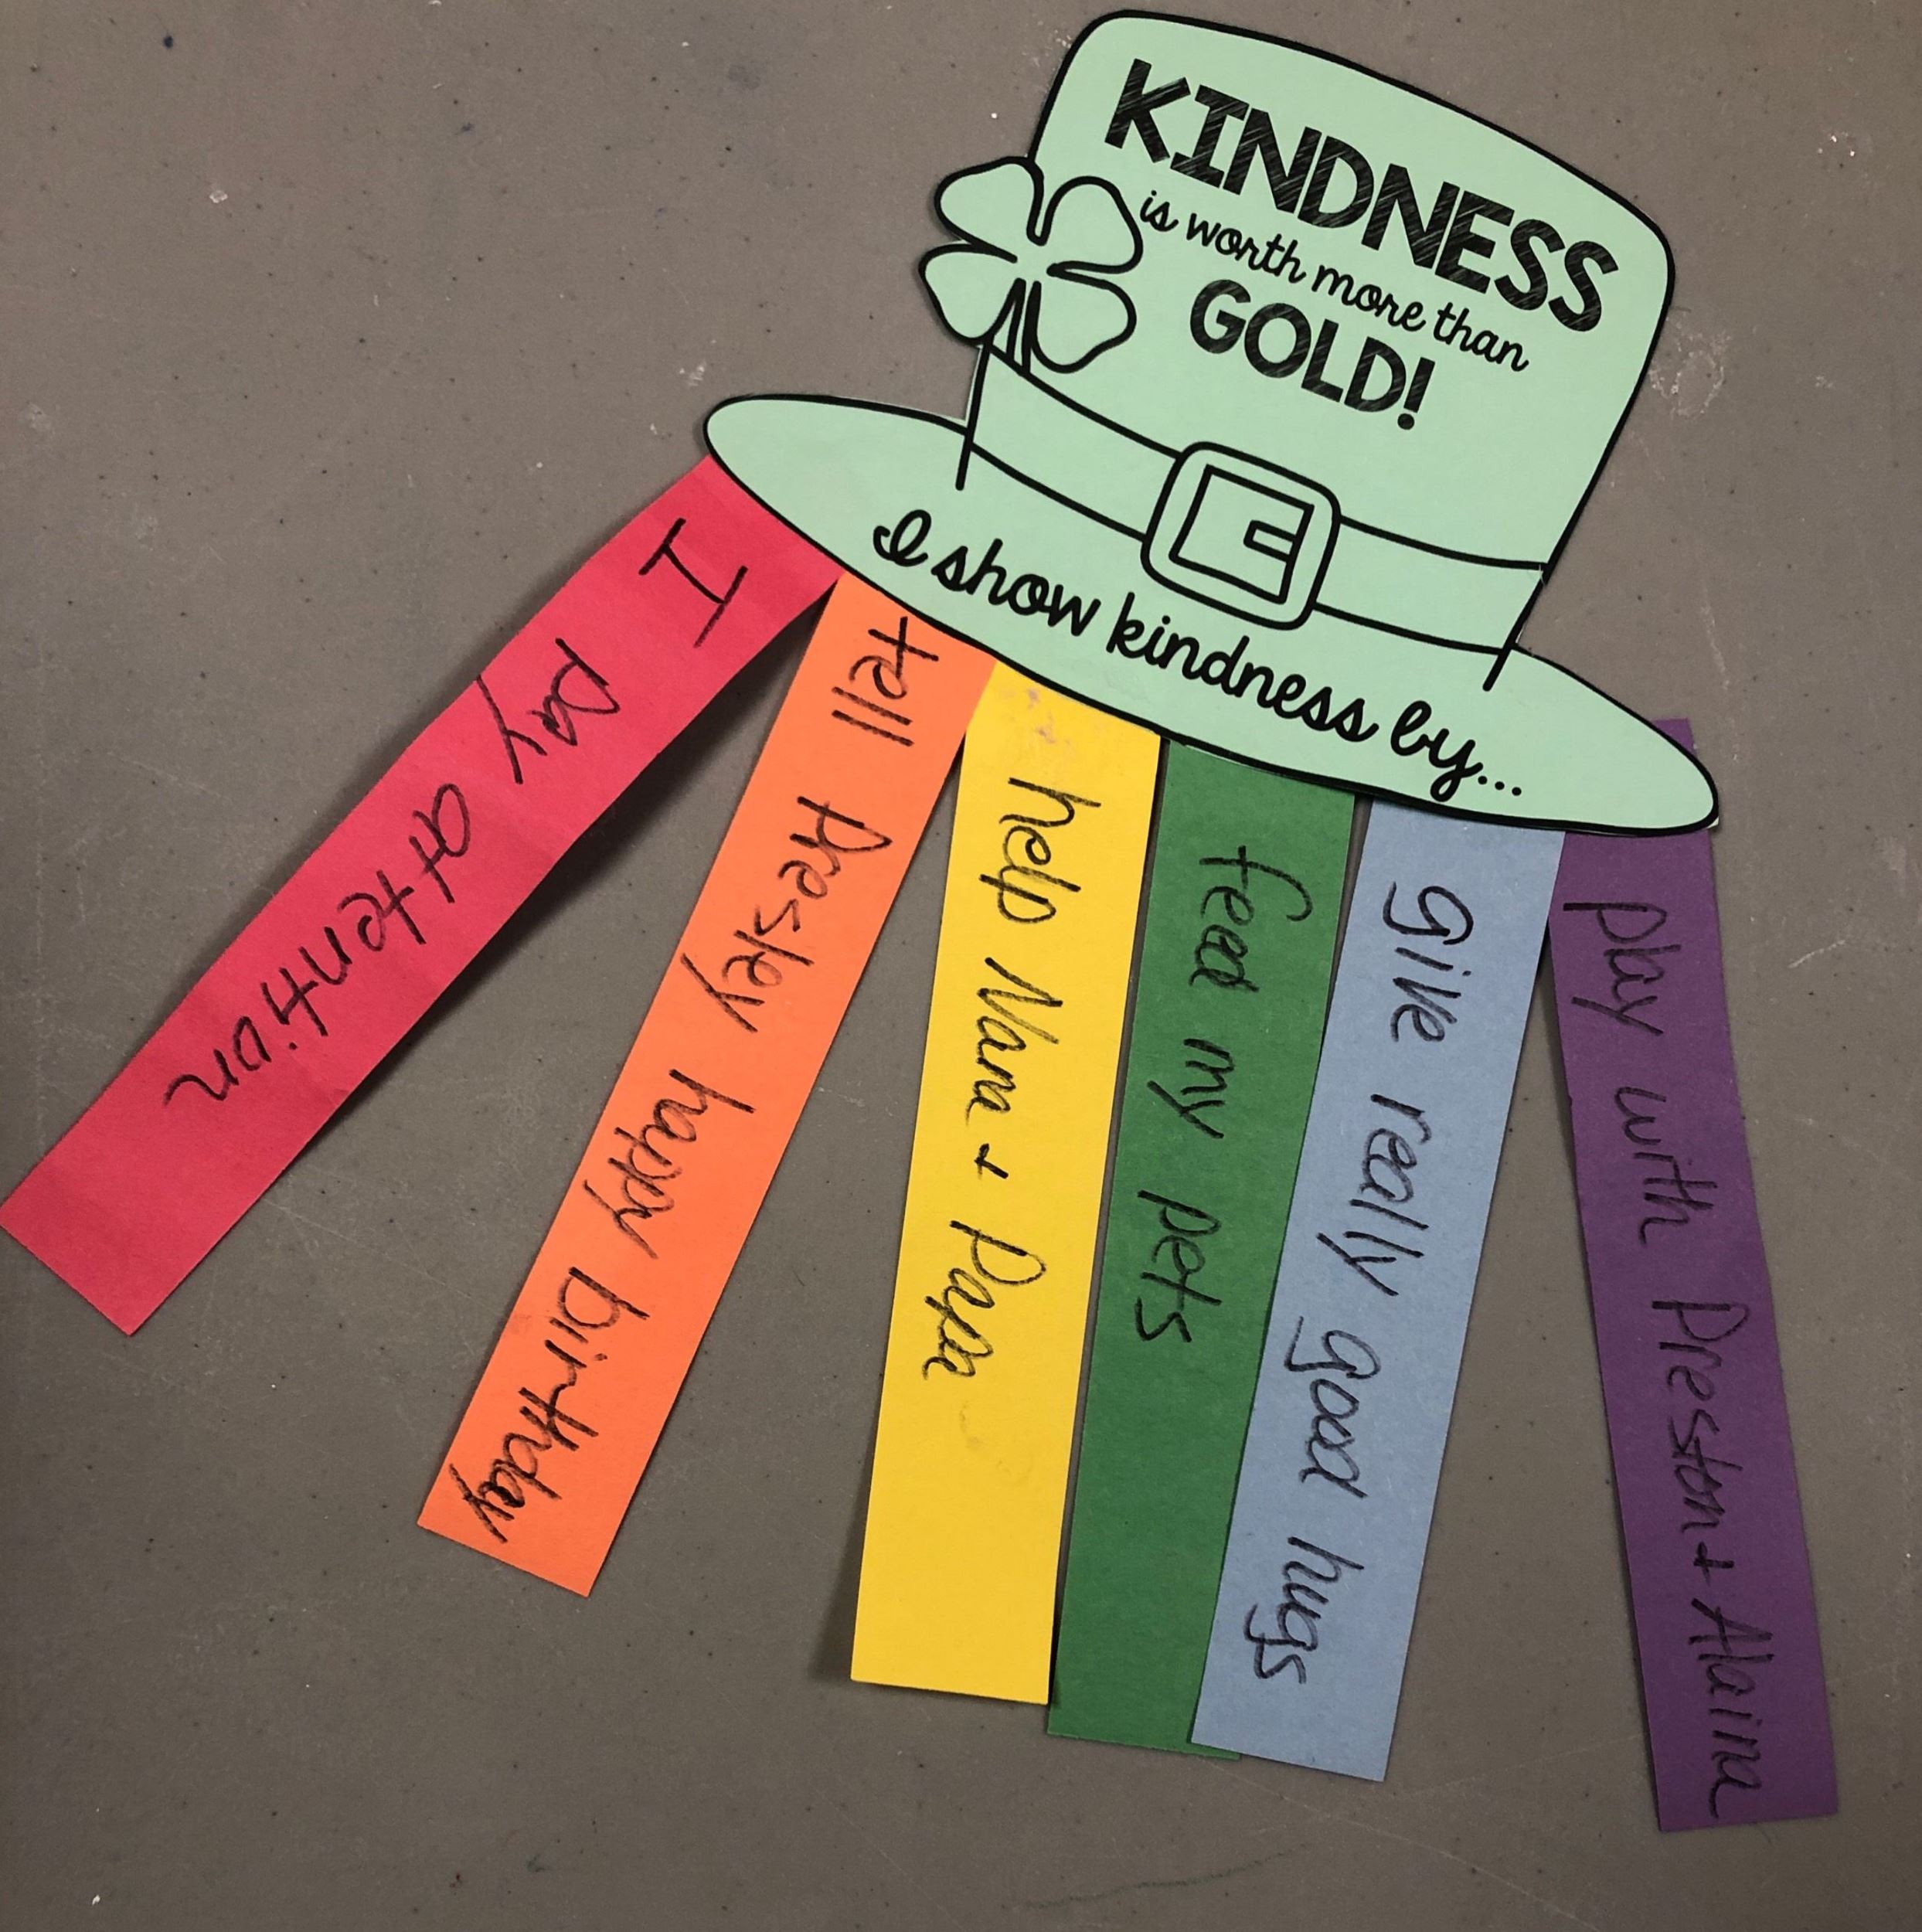 KINDNESS
is worth more than
GOLD!
I show kindness by...
I pay attention
tell Presley happy birthday
help Nana + Papa
feed my pets
give really good hugs
play with Preston + Alaina